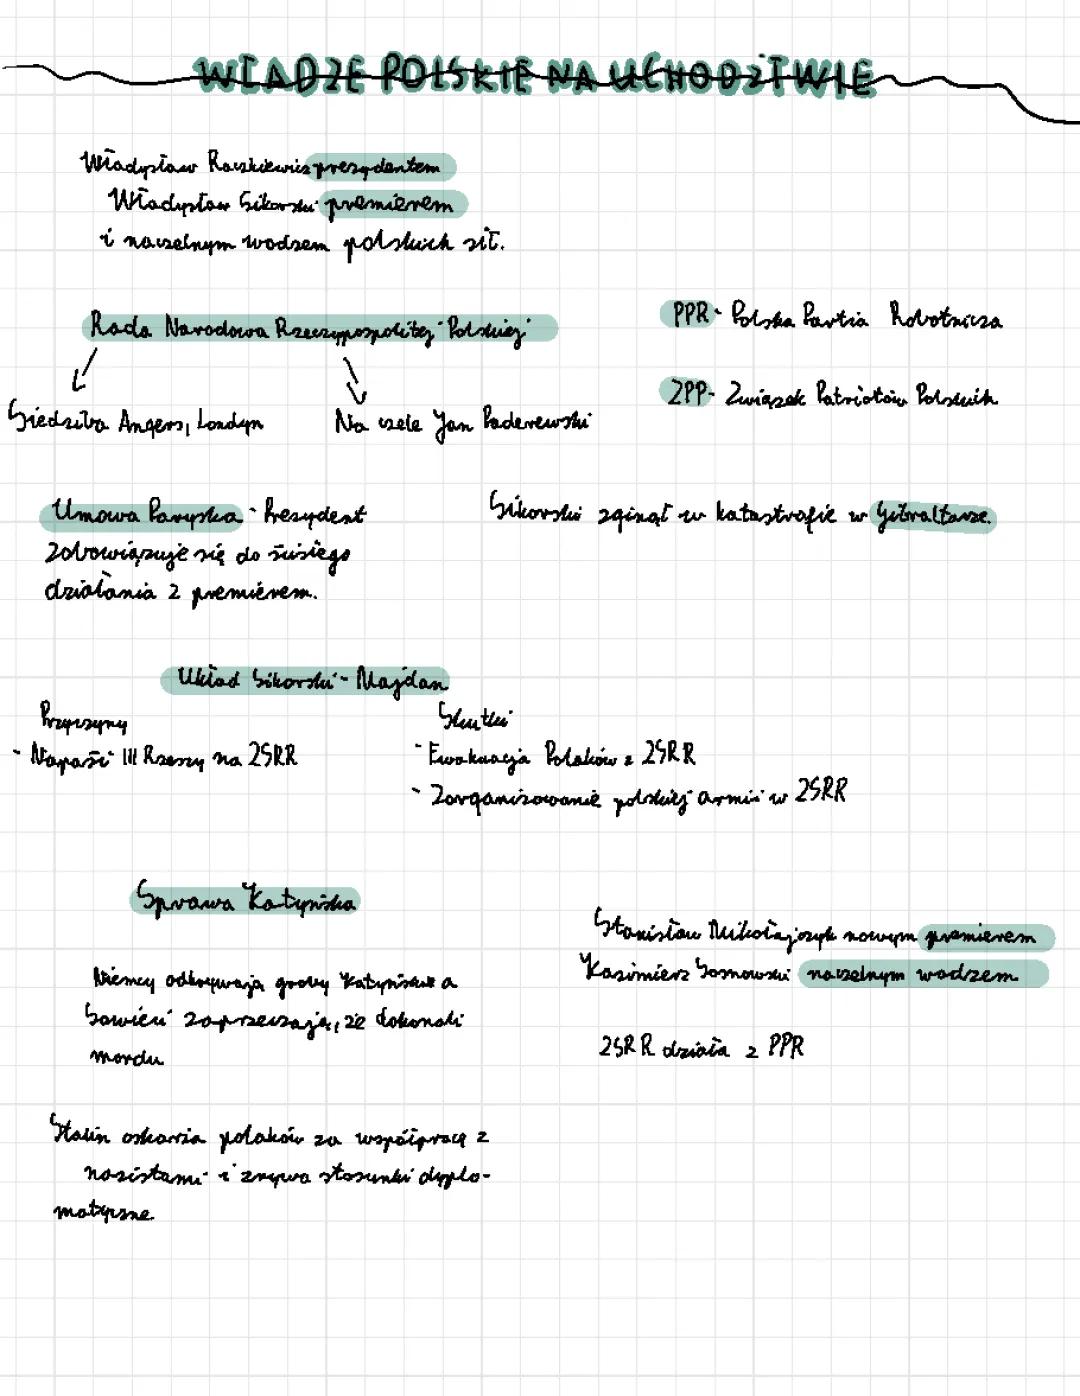 WŁADZE POLSKIE NA UCHODŹTWIE
Władysław Raczkiewicz prezydentem
Władysław Sikorski premierem
i naczelnym wodzem polskich sił.
Rada Narodowa Rzeczypospolitej Polskiej
Siedziba Angers, Londyn
Na czele Jan Paderewski
PPR - Polska Partia Robotnicza
ZPP - Związek Patriotów Polskich
Umowa Paryska - Prezydent
zobowiązuje się do ścisłego
działania z premierem.
Sikorski zginął w katastrofie w Gibraltarze.
Układ Sikorski - Majdan
Przyczyny
- Napaść III Rzeszy na ZSRR
Skutki
- Ewakuacja Polaków z ZSRR
- Zorganizowanie polskiej armii w ZSRR
Sprawa Katyńska
Niemcy odkrywają groby Katyńskie a
Sowieci zaprzeczają, że dokonali
mordu
Stalin oskarża polaków za współpracę z
nazistami i zrywa stosunki dyplo-
matyczne
Stanisław Mikołajczyk nowym premierem
Kazimierz Sosnowski naczelnym wodzem
ZSRR działa z PPR